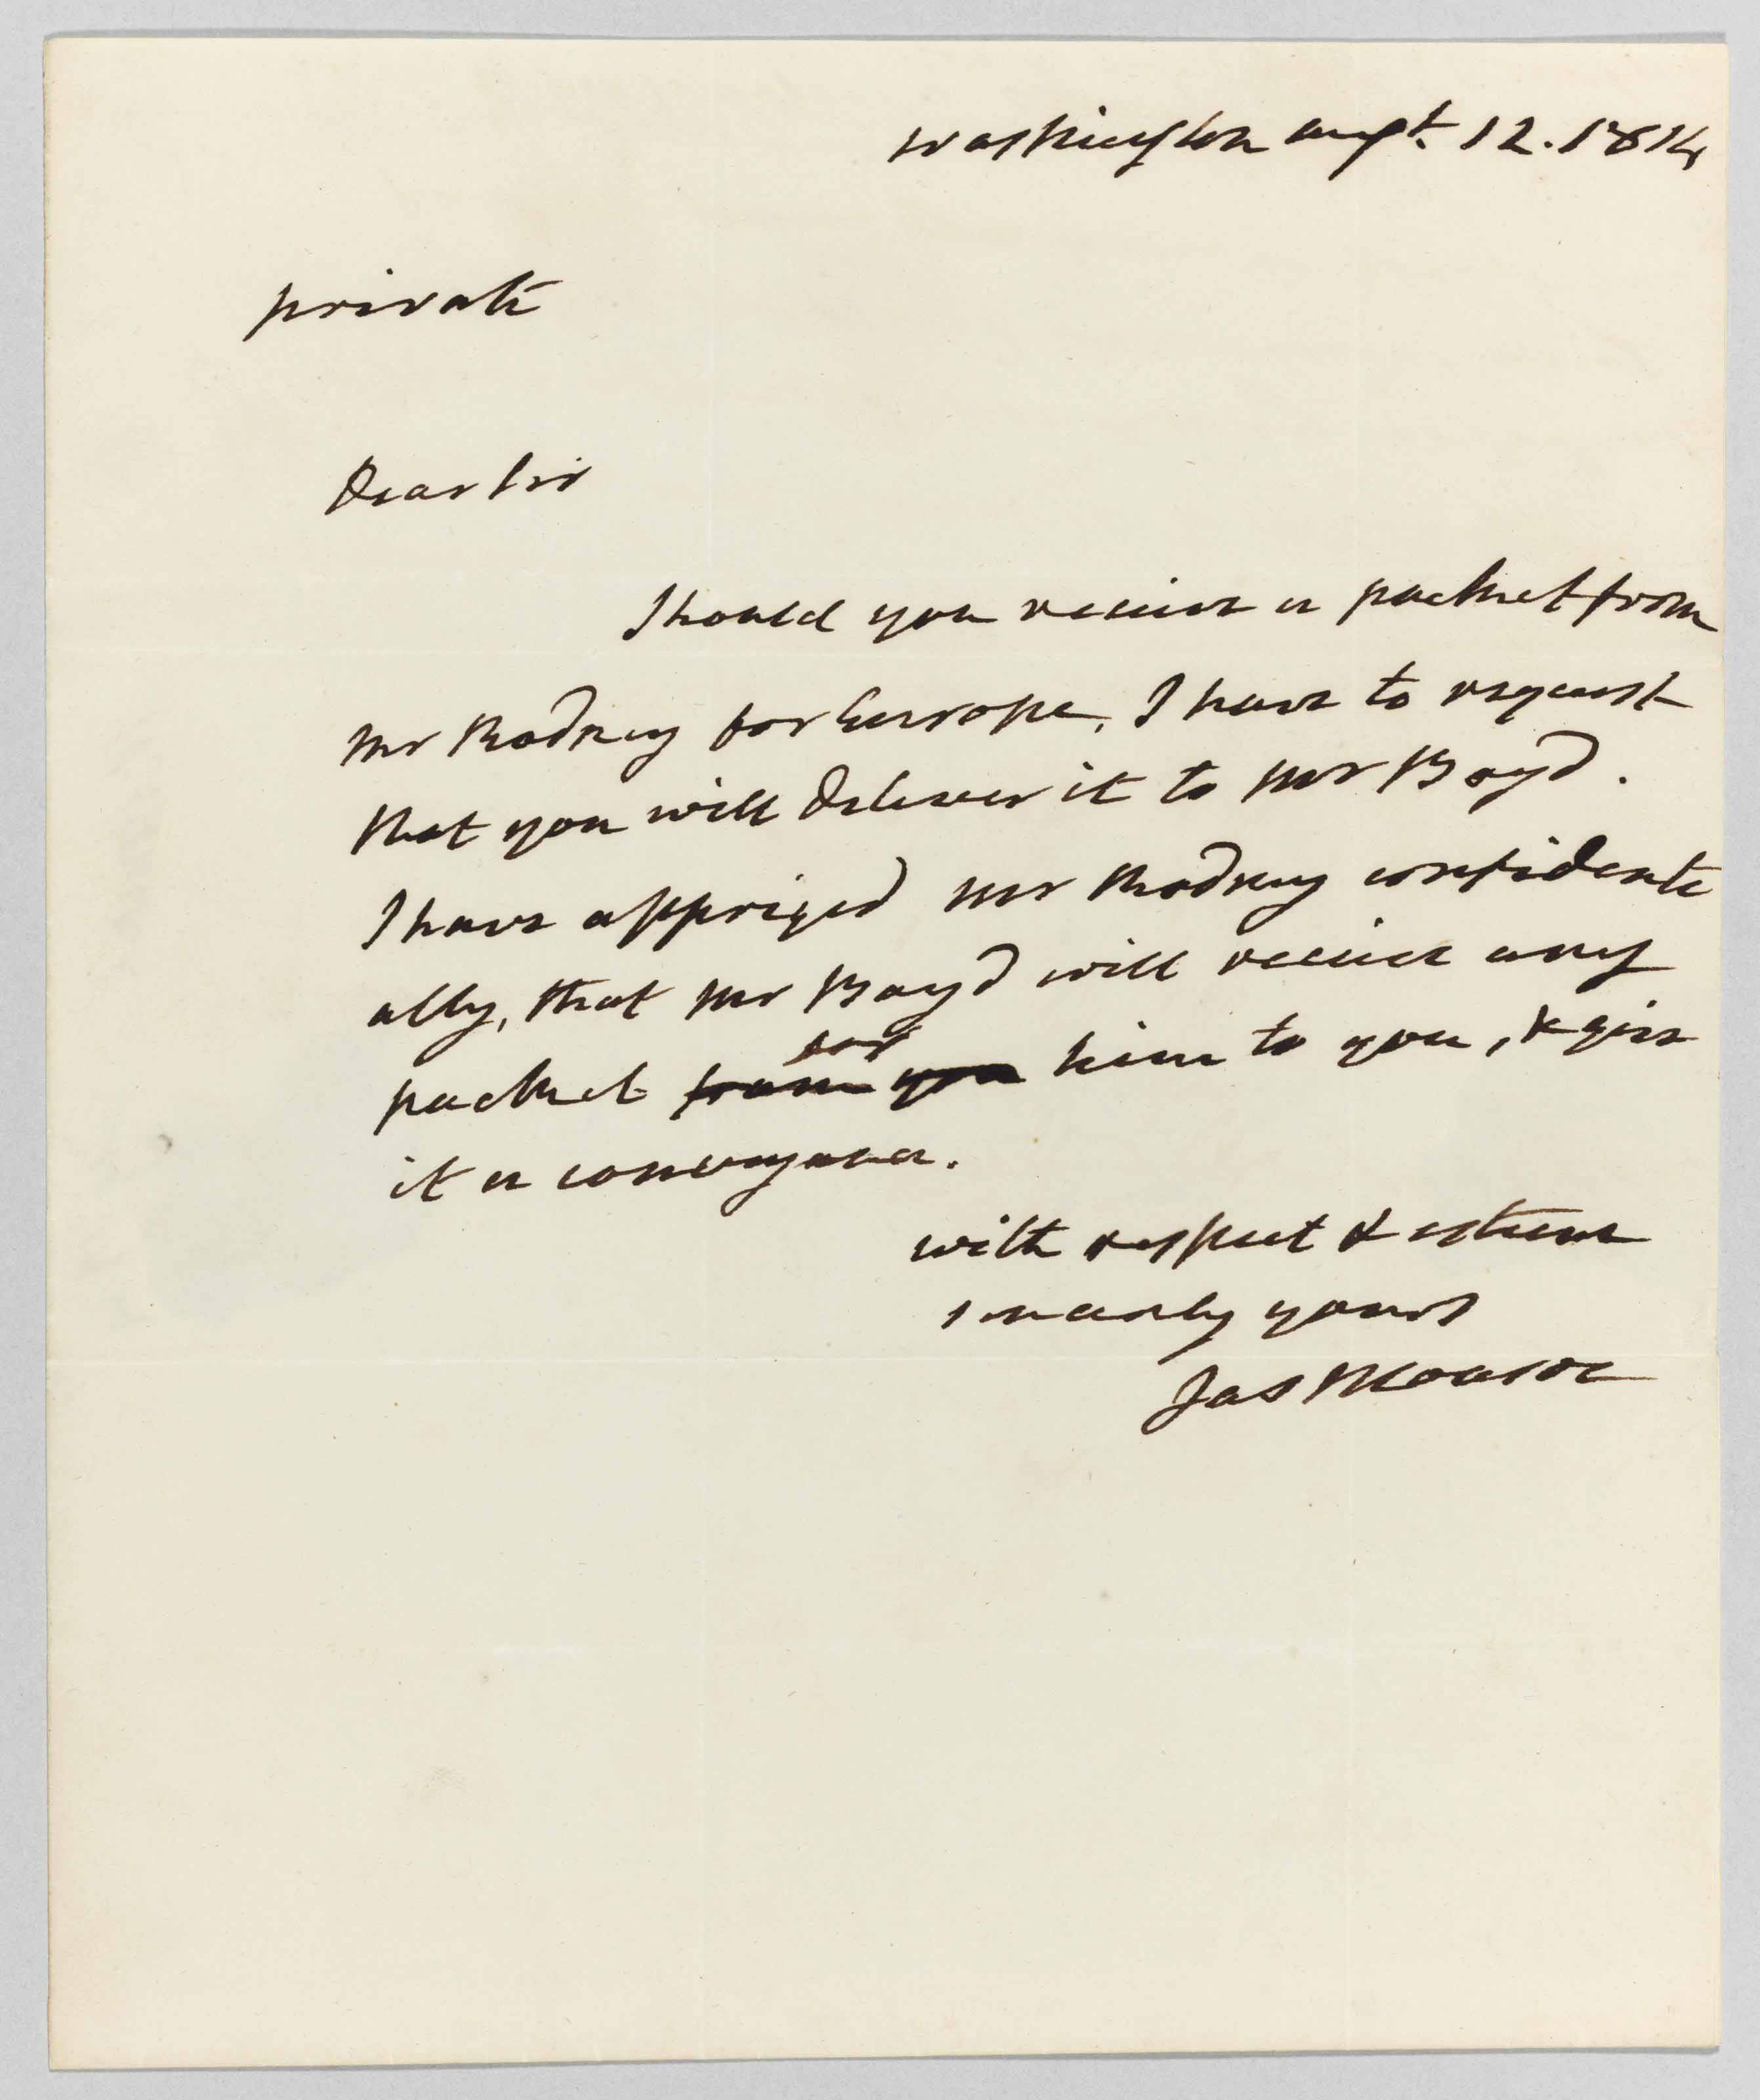 Washington augt. 12. 1814
private
Dear Sir
Should you receive a packet from
Mr Rodney for Europe, I have to request
that you will deliver it to Mr Boyd.
I have apprized Mr Rodney confidenti
ally, that Mr Boyd will receive any
packet from you for him to you, & give
it a conveyance.
with respect & esteem
sincerely yours
Jas Monroe